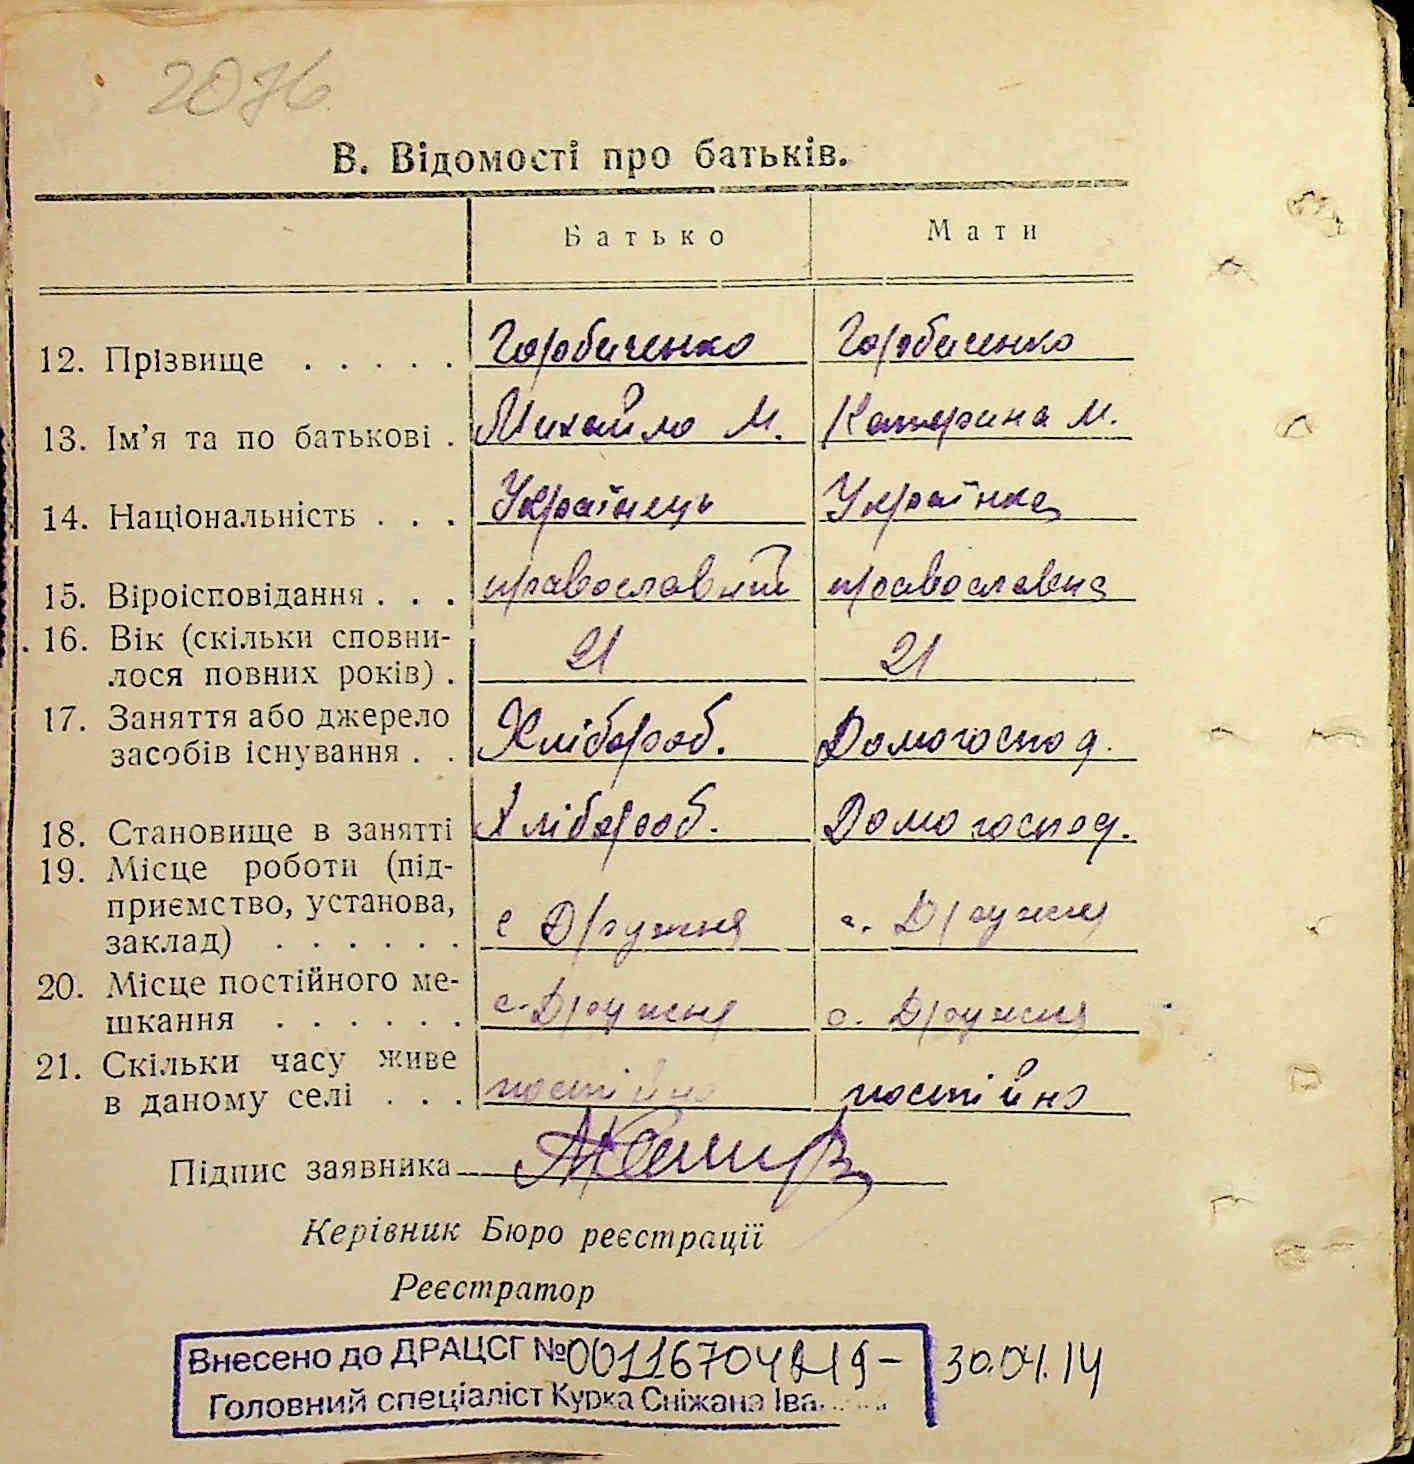 2076
В. Відомості про батьків.
Батько Мати
12. Прізвище . . . . . Горбиченко Горбиченко
13. Ім'я та по батькові . Михайло М. Катерина М.
14. Національність . . . Українець Українка
15. Віроісповідання . . . православний православна
16. Вік (скільки сповни-
лося повних років) . 21 21
17. Заняття або джерело
засобів існування . . Хлібороб. Домогоспод.
18. Становище в занятті Хлібороб. Домогоспод.
19. Місце роботи (під-
приємство, установа,
заклад) . . . . . . с Дружня с. Дружня
20. Місце постійного ме-
шкання . . . . . . с. Дружня с. Дружня
21. Скільки часу живе
в даному селі . . . постійно постійно
Підпис заявника
Керівник Бюро реєстрації
Реєстратор
Внесено до ДРАЦСГ № 30.04.14
Головний спеціаліст Курка Сніжана